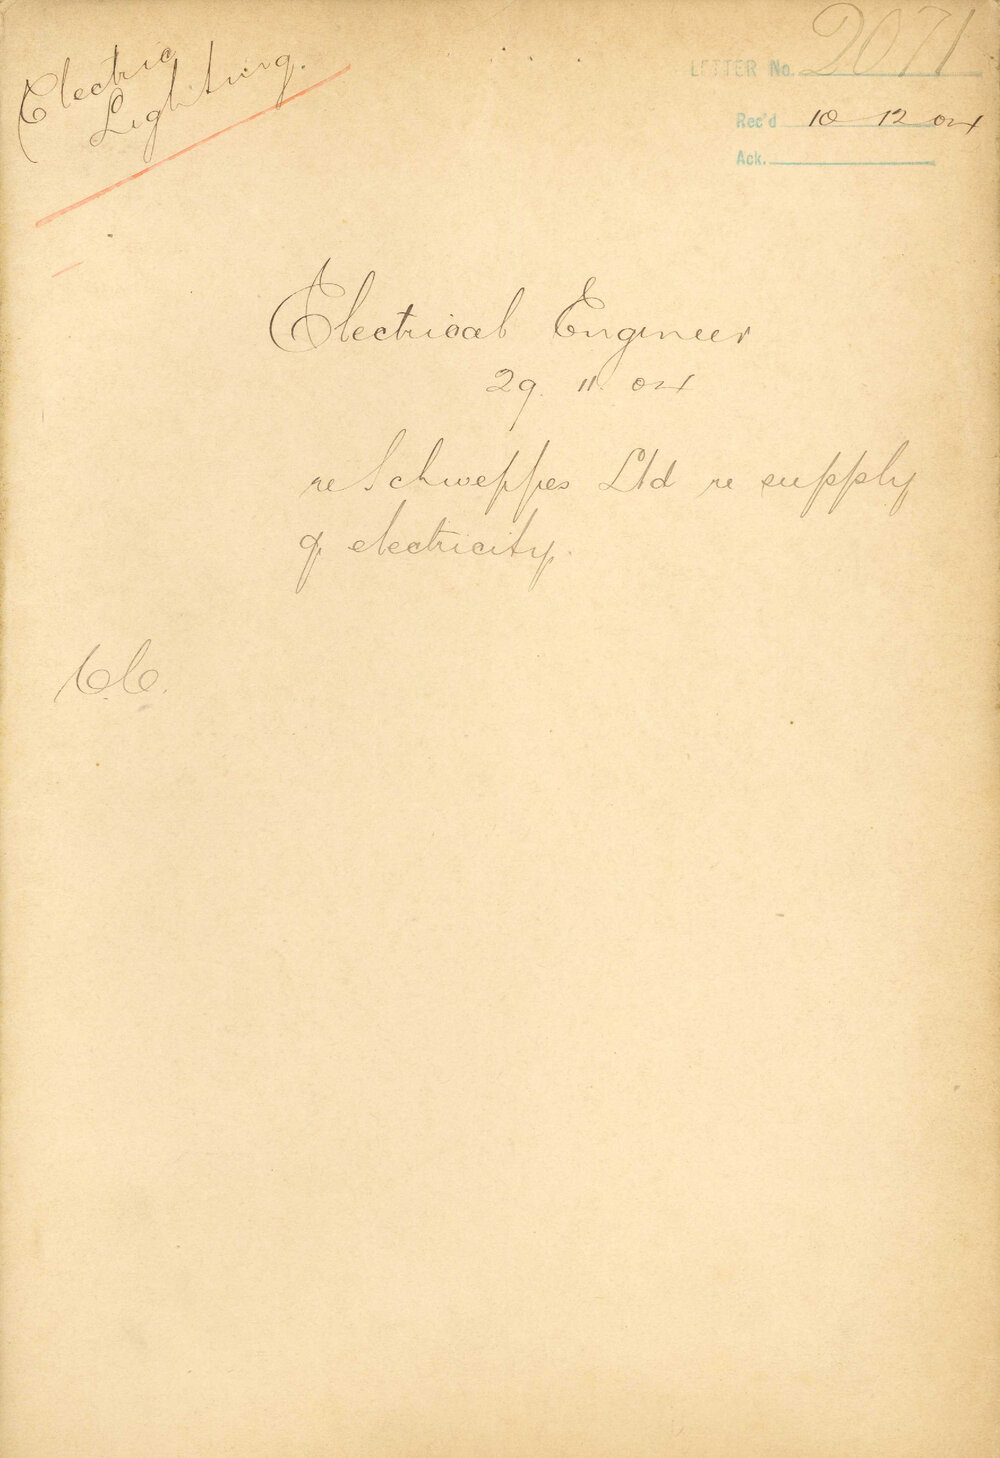 Electric
Lighting.
LETTER No. 2071
Rec'd 10 12 04
Ack.
Electrical Engineer
29. 11. 04
re Schweppes Ltd re supply
of electricity.